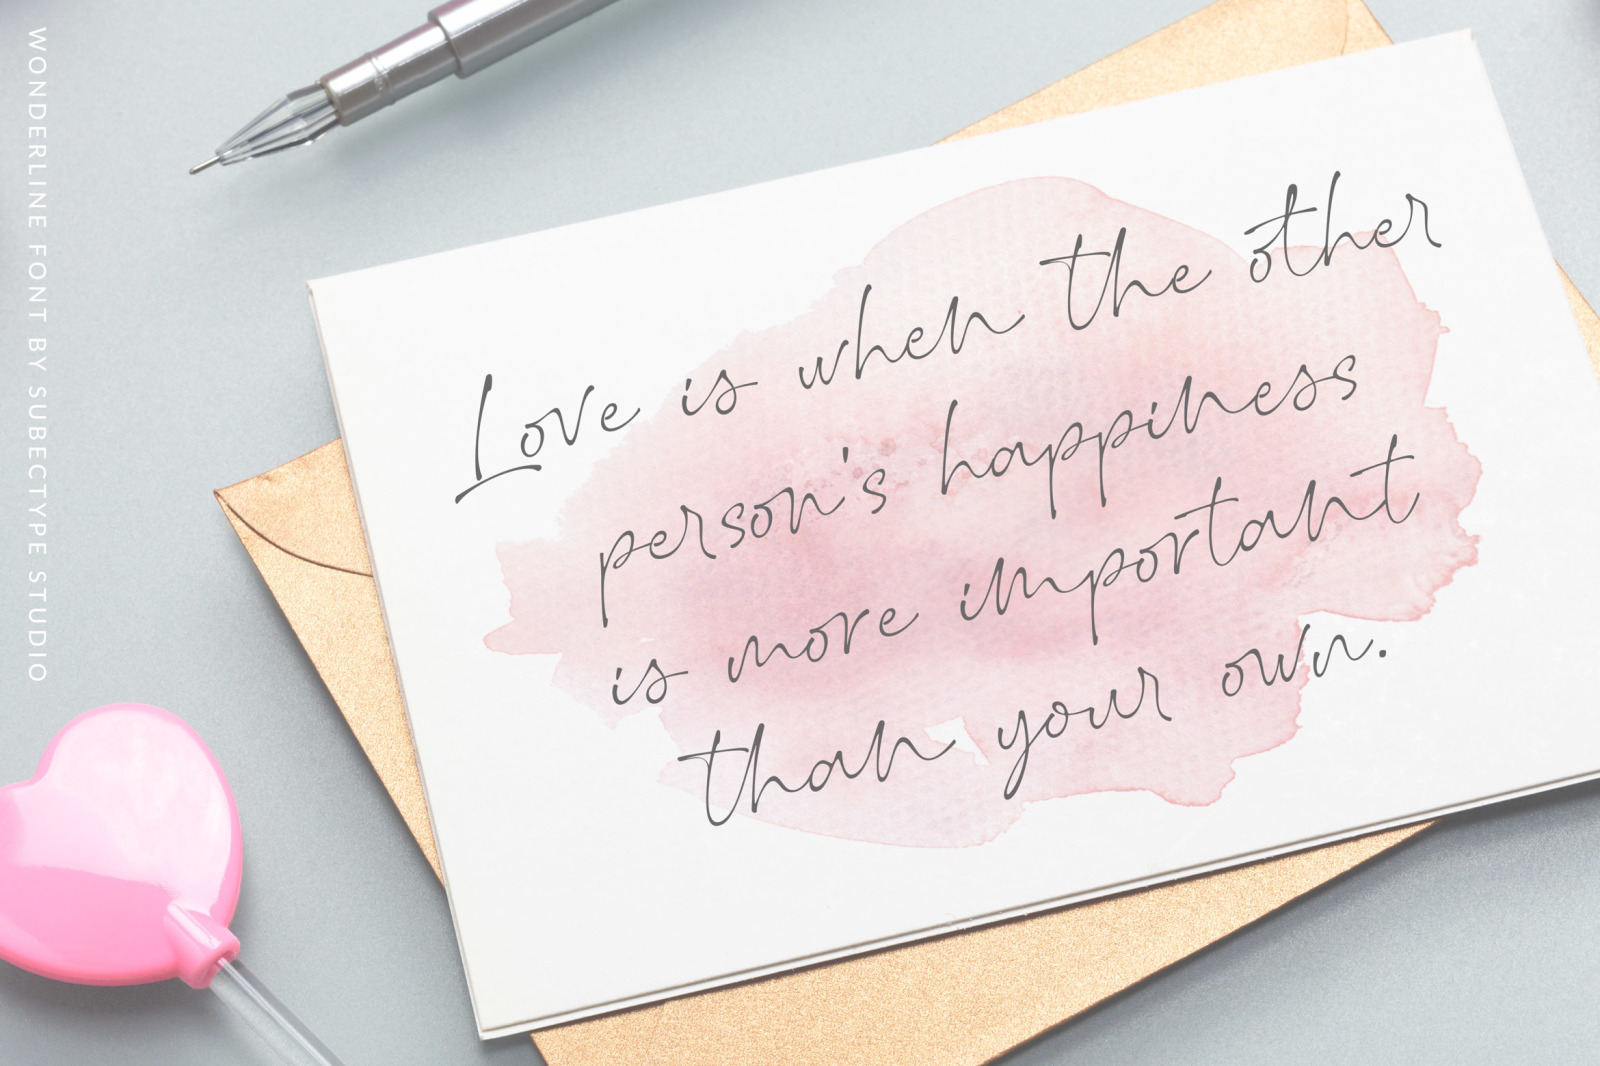 WONDERLINE FONT BY SUBECTYPE STUDIO
Love is when the other
person's happiness
is more important
than your own.